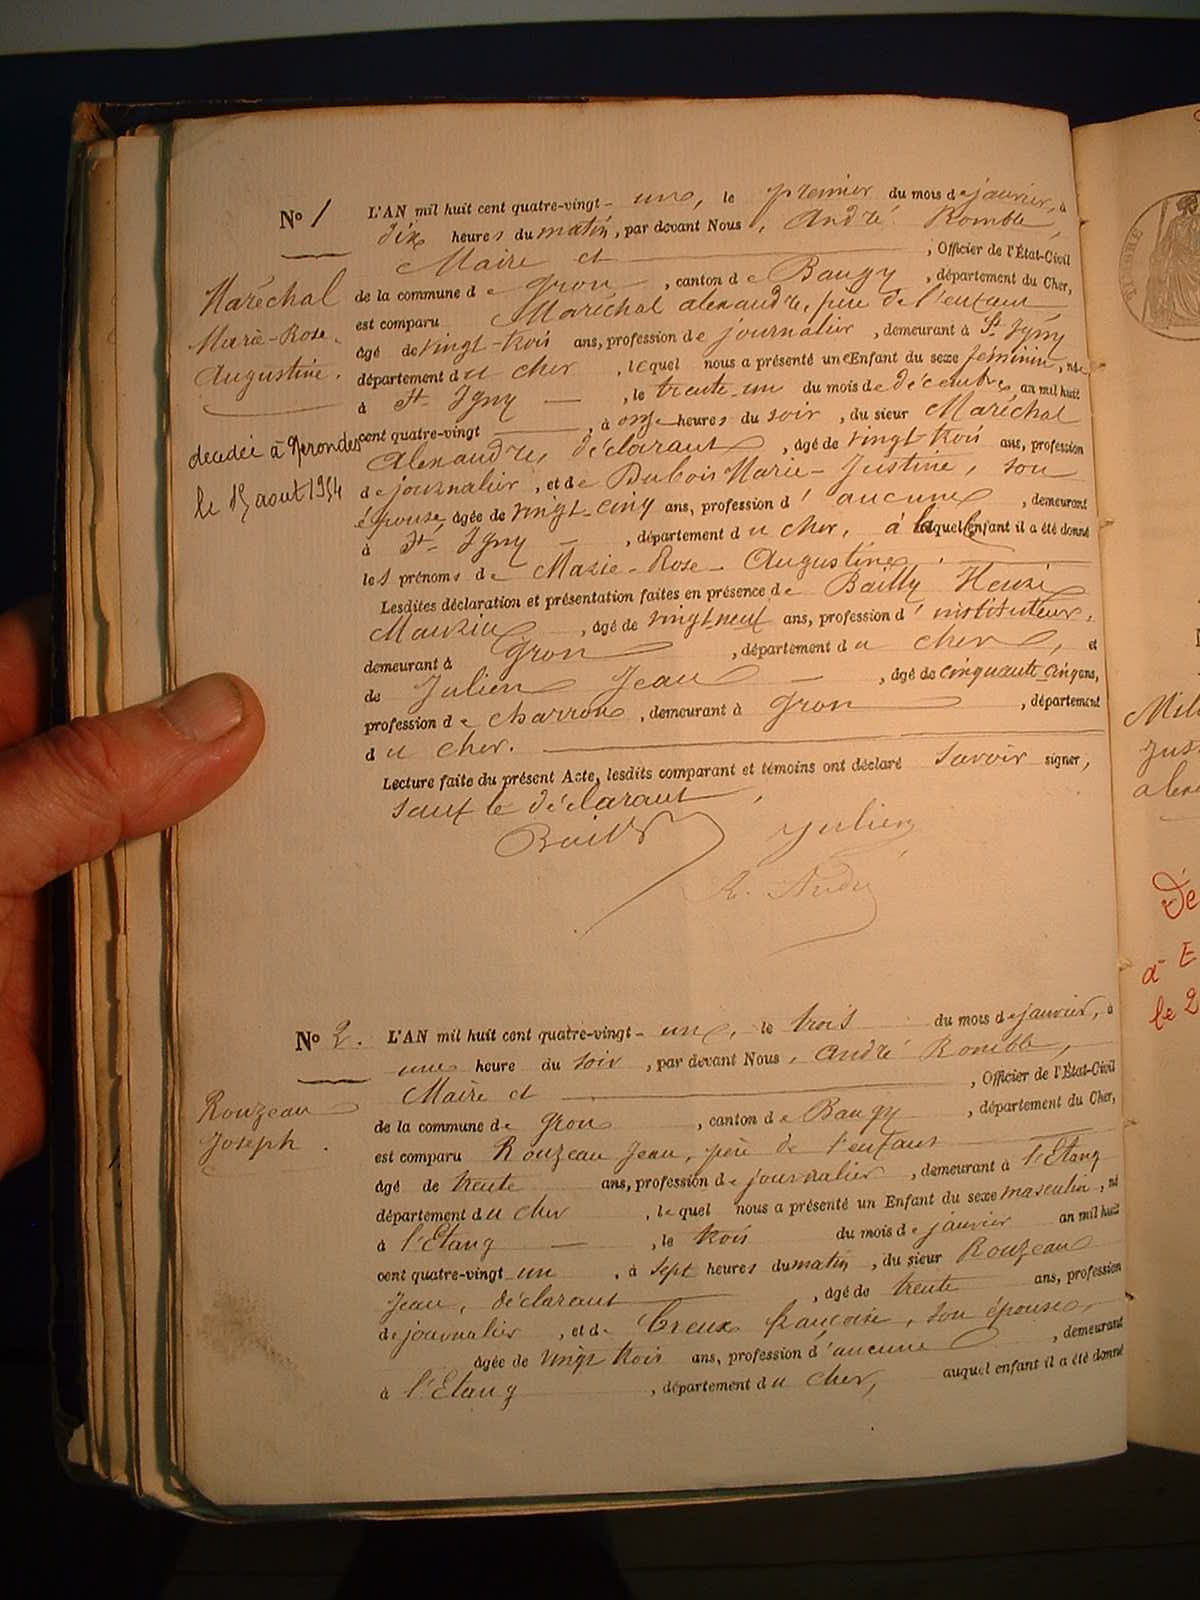 N° 1
Maréchal
Marie-Rose.
Augustine.
décédée à Nerondes
le 15 aout 1954
L'AN mil huit cent quatre-vingt- une, le premier du mois de janvier, à
dix heures du matin, par devant Nous, André Romble,
Maire et , Officier de l'État-Civil
de la commune de Gron , canton de Baugy , département du Cher,
est comparu Maréchal alexandre, père de l'enfant
âgé de vingt-trois ans, profession de journalier , demeurant à St Igny
département du cher , lequel nous a présenté une Enfant du sexe féminin, née
à St Igny — , le trente-un du mois de décembre, an mil huit
cent quatre-vingt , à onze heures du soir , du sieur Maréchal
Alexandre, déclarant , âgé de vingt-trois ans, profession
de journalier , et de Dubois Marie-Justine, son
épouse, âgée de vingt-cinq ans, profession d'aucune , demeurant
à St Igny — , département du cher, à laquelle enfant il a été donné
les prénoms de Marie-Rose-Augustine.
Lesdites déclaration et présentation faites en présence de Bailly Henri
Maurice , âgé de vingt-neuf ans, profession d'instituteur,
demeurant à Gron , département du cher , et
de Julien Jean — , âgé de cinquante-cinq ans,
profession de charron , demeurant à Gron , département
du cher.
Lecture faite du présent Acte, lesdits comparant et témoins ont déclaré savoir signer,
sauf le déclarant,
Bailly Julien
R. André
N° 2.
Rouzeau
Joseph.
L'AN mil huit cent quatre-vingt- une, le trois du mois de janvier, à
une heure du soir , par devant Nous, André Romble,
Maire et , Officier de l'État-Civil
de la commune de Gron , canton de Baugy , département du Cher,
est comparu Rouzeau Jean, père de l'enfant
âgé de trente ans, profession de journalier , demeurant à l'Etang
département du cher , lequel nous a présenté un Enfant du sexe masculin, né
à l'Etang — , le trois du mois de janvier an mil huit
cent quatre-vingt un , à sept heures du matin , du sieur Rouzeau
Jean, déclarant , âgé de trente ans, profession
de journalier , et de Creux françoise, son épouse,
âgée de vingt trois ans, profession d'aucune , demeurant
à l'Etang , département du cher, auquel enfant il a été donné
TIMBRE
Dé
à E
le 2